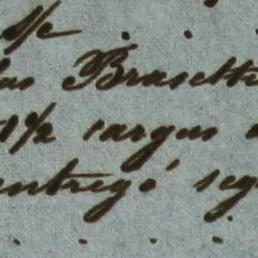 s/c
las Brasetti
1/2 cargas
entregó seg